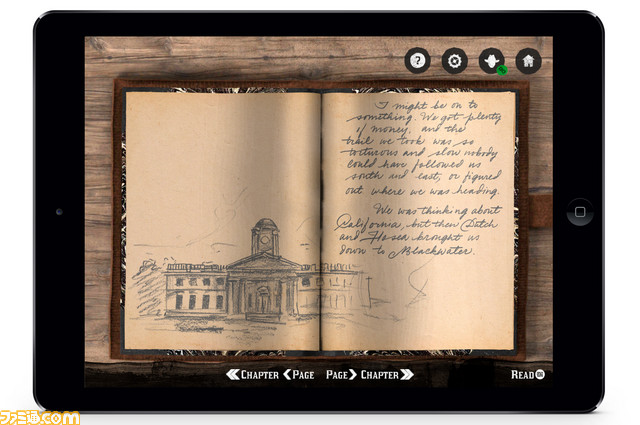 I might be on to
something. We got plenty
of money, and the
trail we took was so
torturous and slow nobody
could have followed us
south and east, or figured
out where we was heading.
We was thinking about
California, but then Dutch
and Hosea brought us
down to Blackwater.
CHAPTER PAGE PAGE CHAPTER READ
ファミ通.com